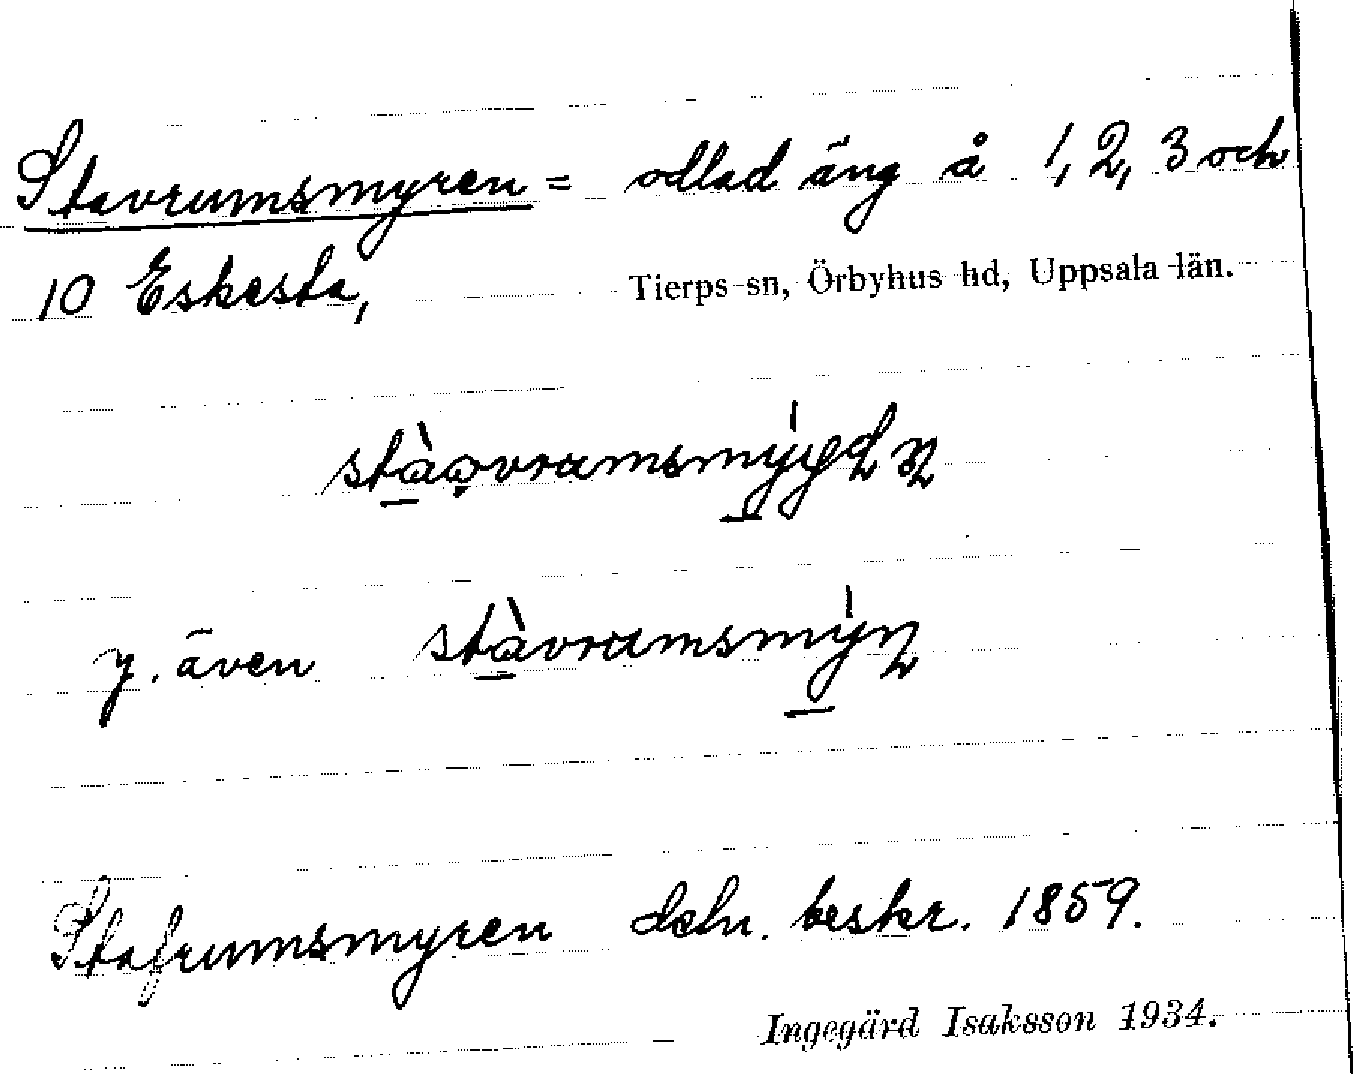 Stavrumsmyren = odlad äng å 1, 2, 3 och
10 Eskesta, Tierps sn, Örbyhus hd, Uppsala län.
y. även
Stafrumsmyren deln. beskr. 1859.
Ingegärd Isaksson 1934.